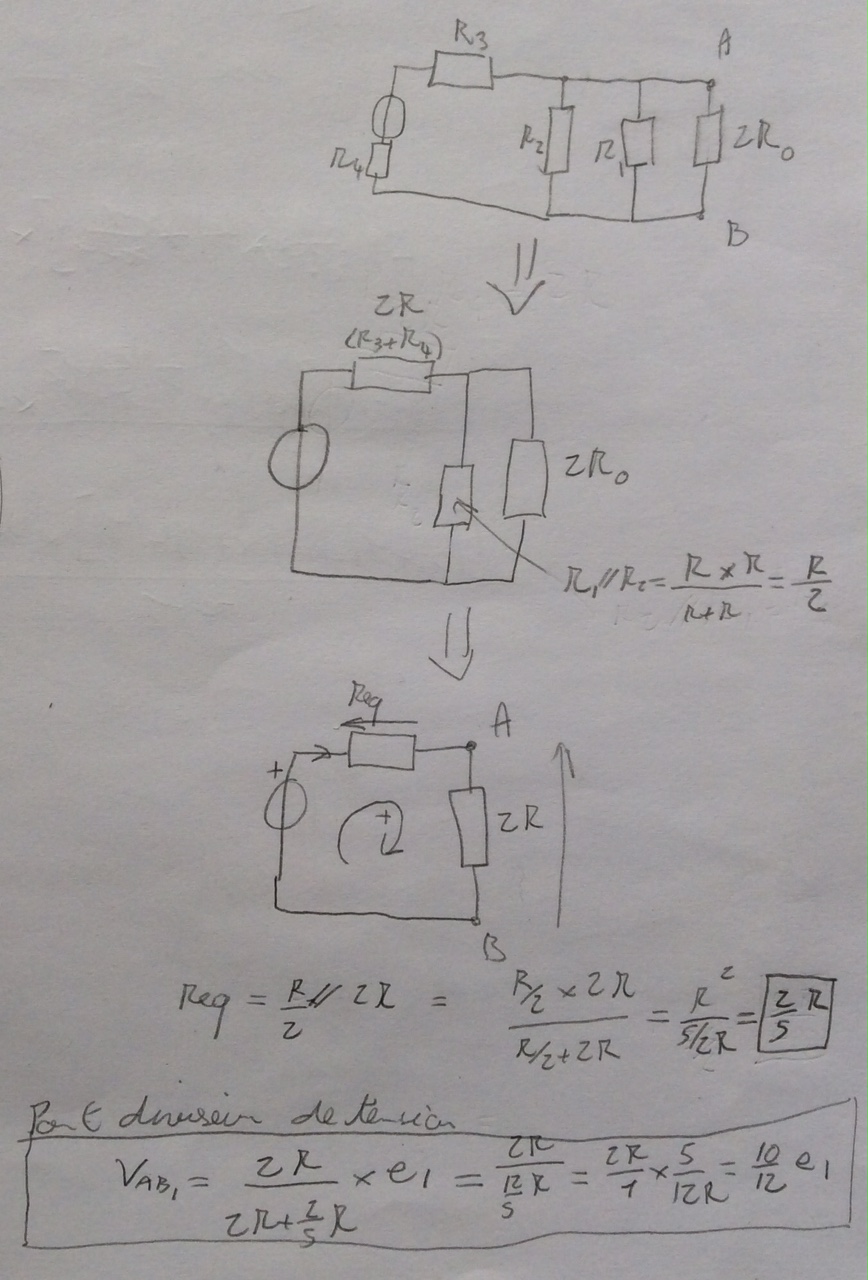 R3
A
R4
R2
R1
2R0
B
⇓
2R
(R3+R4)
2R0
R1//R2 = R×R/R+R = R/2
⇓
Req
A
+
+
2R
B
Req = R/2 // 2R = R/2 × 2R / R/2 + 2R = R² / 5/2R = 2/5 R
Pont diviseur de tension
VAB1 = 2R / 2R + 2/5 R × e1 = 2R / 12/5 R = 2R/1 × 5/12R = 10/12 e1